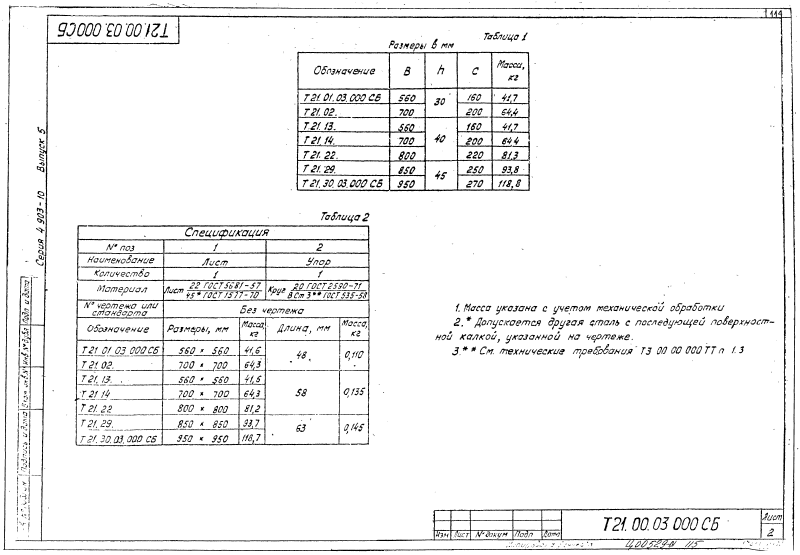 Т21.00.03.000СБ
111
Серия 4.903-10 Выпуск 5
Таблица 1
Размеры в мм
Обозначение B h C Масса, кг
Т21.01.03.000 СБ 560 30 160 41,7
Т21.02. 700 200 64,4
Т21.13. 560 40 160 41,7
Т21.14. 700 200 64,4
Т21.22. 800 220 81,3
Т21.29. 850 45 250 93,8
Т21.30.03.000СБ 950 270 118,8
Таблица 2
Спецификация
N° поз 1 2
Наименование Лист Упор
Количество 1 1
Материал Лист 22 ГОСТ 5681-57 / 45* ГОСТ 1577-70 Круг 20 ГОСТ 2590-71 / В Ст 3** ГОСТ 535-58
N° чертежа или стандарта Без чертежа
Обозначение Размеры, мм Масса, кг Длина, мм Масса, кг
Т21.01.03.000 СБ 560 × 560 41,6 48 0,110
Т21.02. 700 × 700 64,3
Т21.13. 560 × 560 41,5 58 0,135
Т21.14 700 × 700 64,3
Т21.22 800 × 800 81,2
Т21.29. 850 × 850 93,7 63 0,145
Т21.30.03.000 СБ 950 × 950 118,7
1. Масса указана с учетом механической обработки
2.* Допускается другая сталь с последующей поверхност-
ной калкой, указанной на чертеже.
3.** См. технические требования Т3 00 00 000 ТТ п 1.3
Подпись и дата
Изм Лист N° докум Подп Дата
Т21.00.03 000 СБ
Лист
2